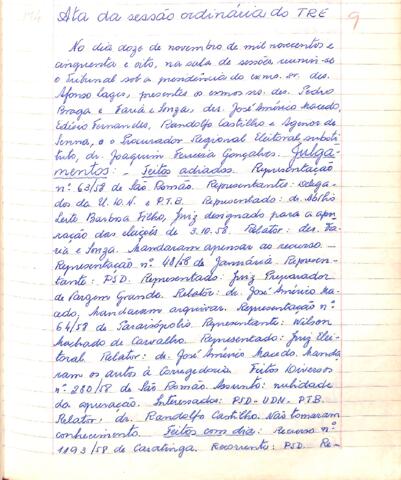 Ata da sessão ordinária do TRE 9
No dia doze de novembro de mil novecentos e
cinquenta e oito, na sala de sessões reuniu-se
o Tribunal sob a presidência do exmo. sr. des.
Afonso Lages, presentes os exmos. srs. des. Pedro
Braga e Faria e Souza, drs. José Américo Macedo,
Edísio Fernandes, Randolfo Castilho e Agenor de
Senna, e o Procurador Regional Eleitoral substi
tuto, dr. Joaquim Ferreira Gonçalves. Julga-
mentos: - Feitos adiados. Representação
nº 63/58 de São Romão. Representante: delega-
dos da U.D.N. e P.T.B. Representado: dr. Abílio
Leite Barbosa Filho, Juiz designado para a apu-
ração das eleições de 3.10.58. Relator: des. Fa-
ria e Souza. Mandaram apensar ao recurso. -
Representação nº 48/58 de Januária. Represen-
tante: PSD. Representado: Juiz Preparador
de Vargem Grande. Relator: dr. José Américo Ma-
cedo, Mandaram arquivar. Representação nº
64/58 de Paraisópolis. Representante: Wilson
Machado de Carvalho. Representado: Juiz Elei-
toral Relator: dr. José Américo Macedo. Manda
ram os autos à Corregedoria. Feitos Diversos
nº 280/58 de São Romão. Assunto: nulidade
da apuração. Interessados: PSD-UDN-PTB.
Relator, dr. Randolfo Castilho. Não tomaram
conhecimento. Feitos com dia: Recurso nº
1093/58 de Caratinga. Recorrente: PSD. Re-